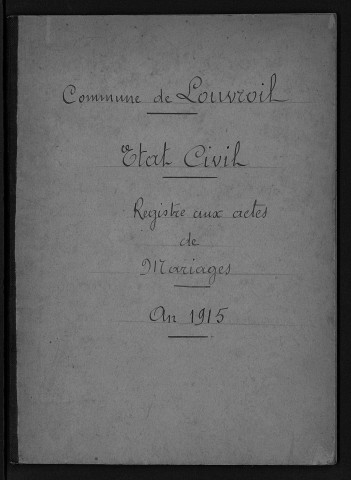 Commune de Louvroil
Etat Civil
Registre aux actes
de
Mariages
An 1915